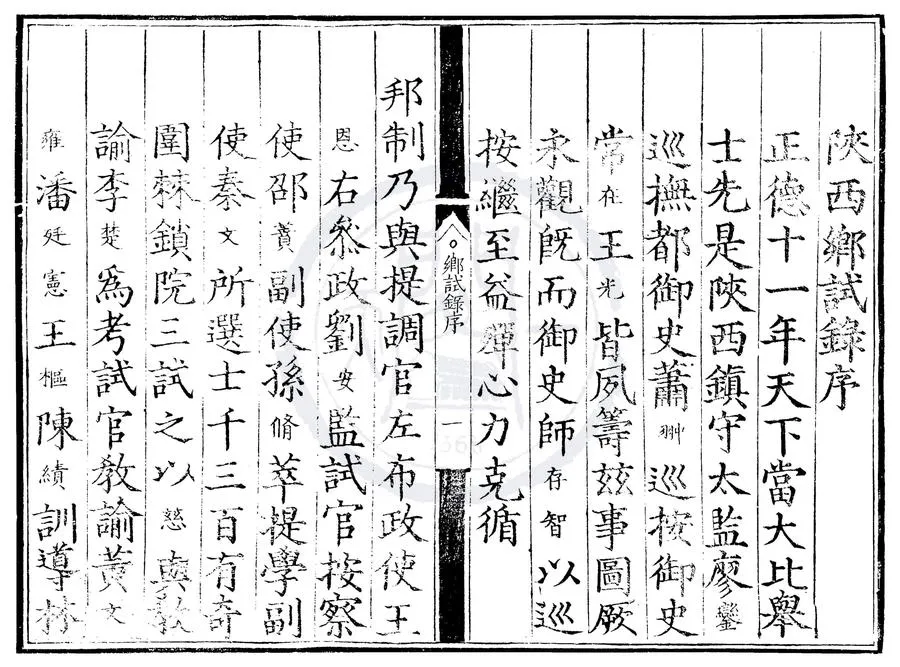 陝西鄉試錄序
正德十一年天下當大比舉
士先是陝西鎮守太監廖鑾
巡撫都御史蕭翀巡按御史
常在王光皆夙籌茲事圖厥
永觀既而御史師存智以巡
按繼至益殫心力克循
鄉試錄序
一
邦制乃與提調官左布政使王
恩右叅政劉安監試官按察
使邵蕡副使孫脩萃提學副
使秦文所選士千三百有奇
圍棘鎖院三試之以愁與教
諭李楚爲考試官教諭黃文
雍潘廷憲王樞陳績訓導林